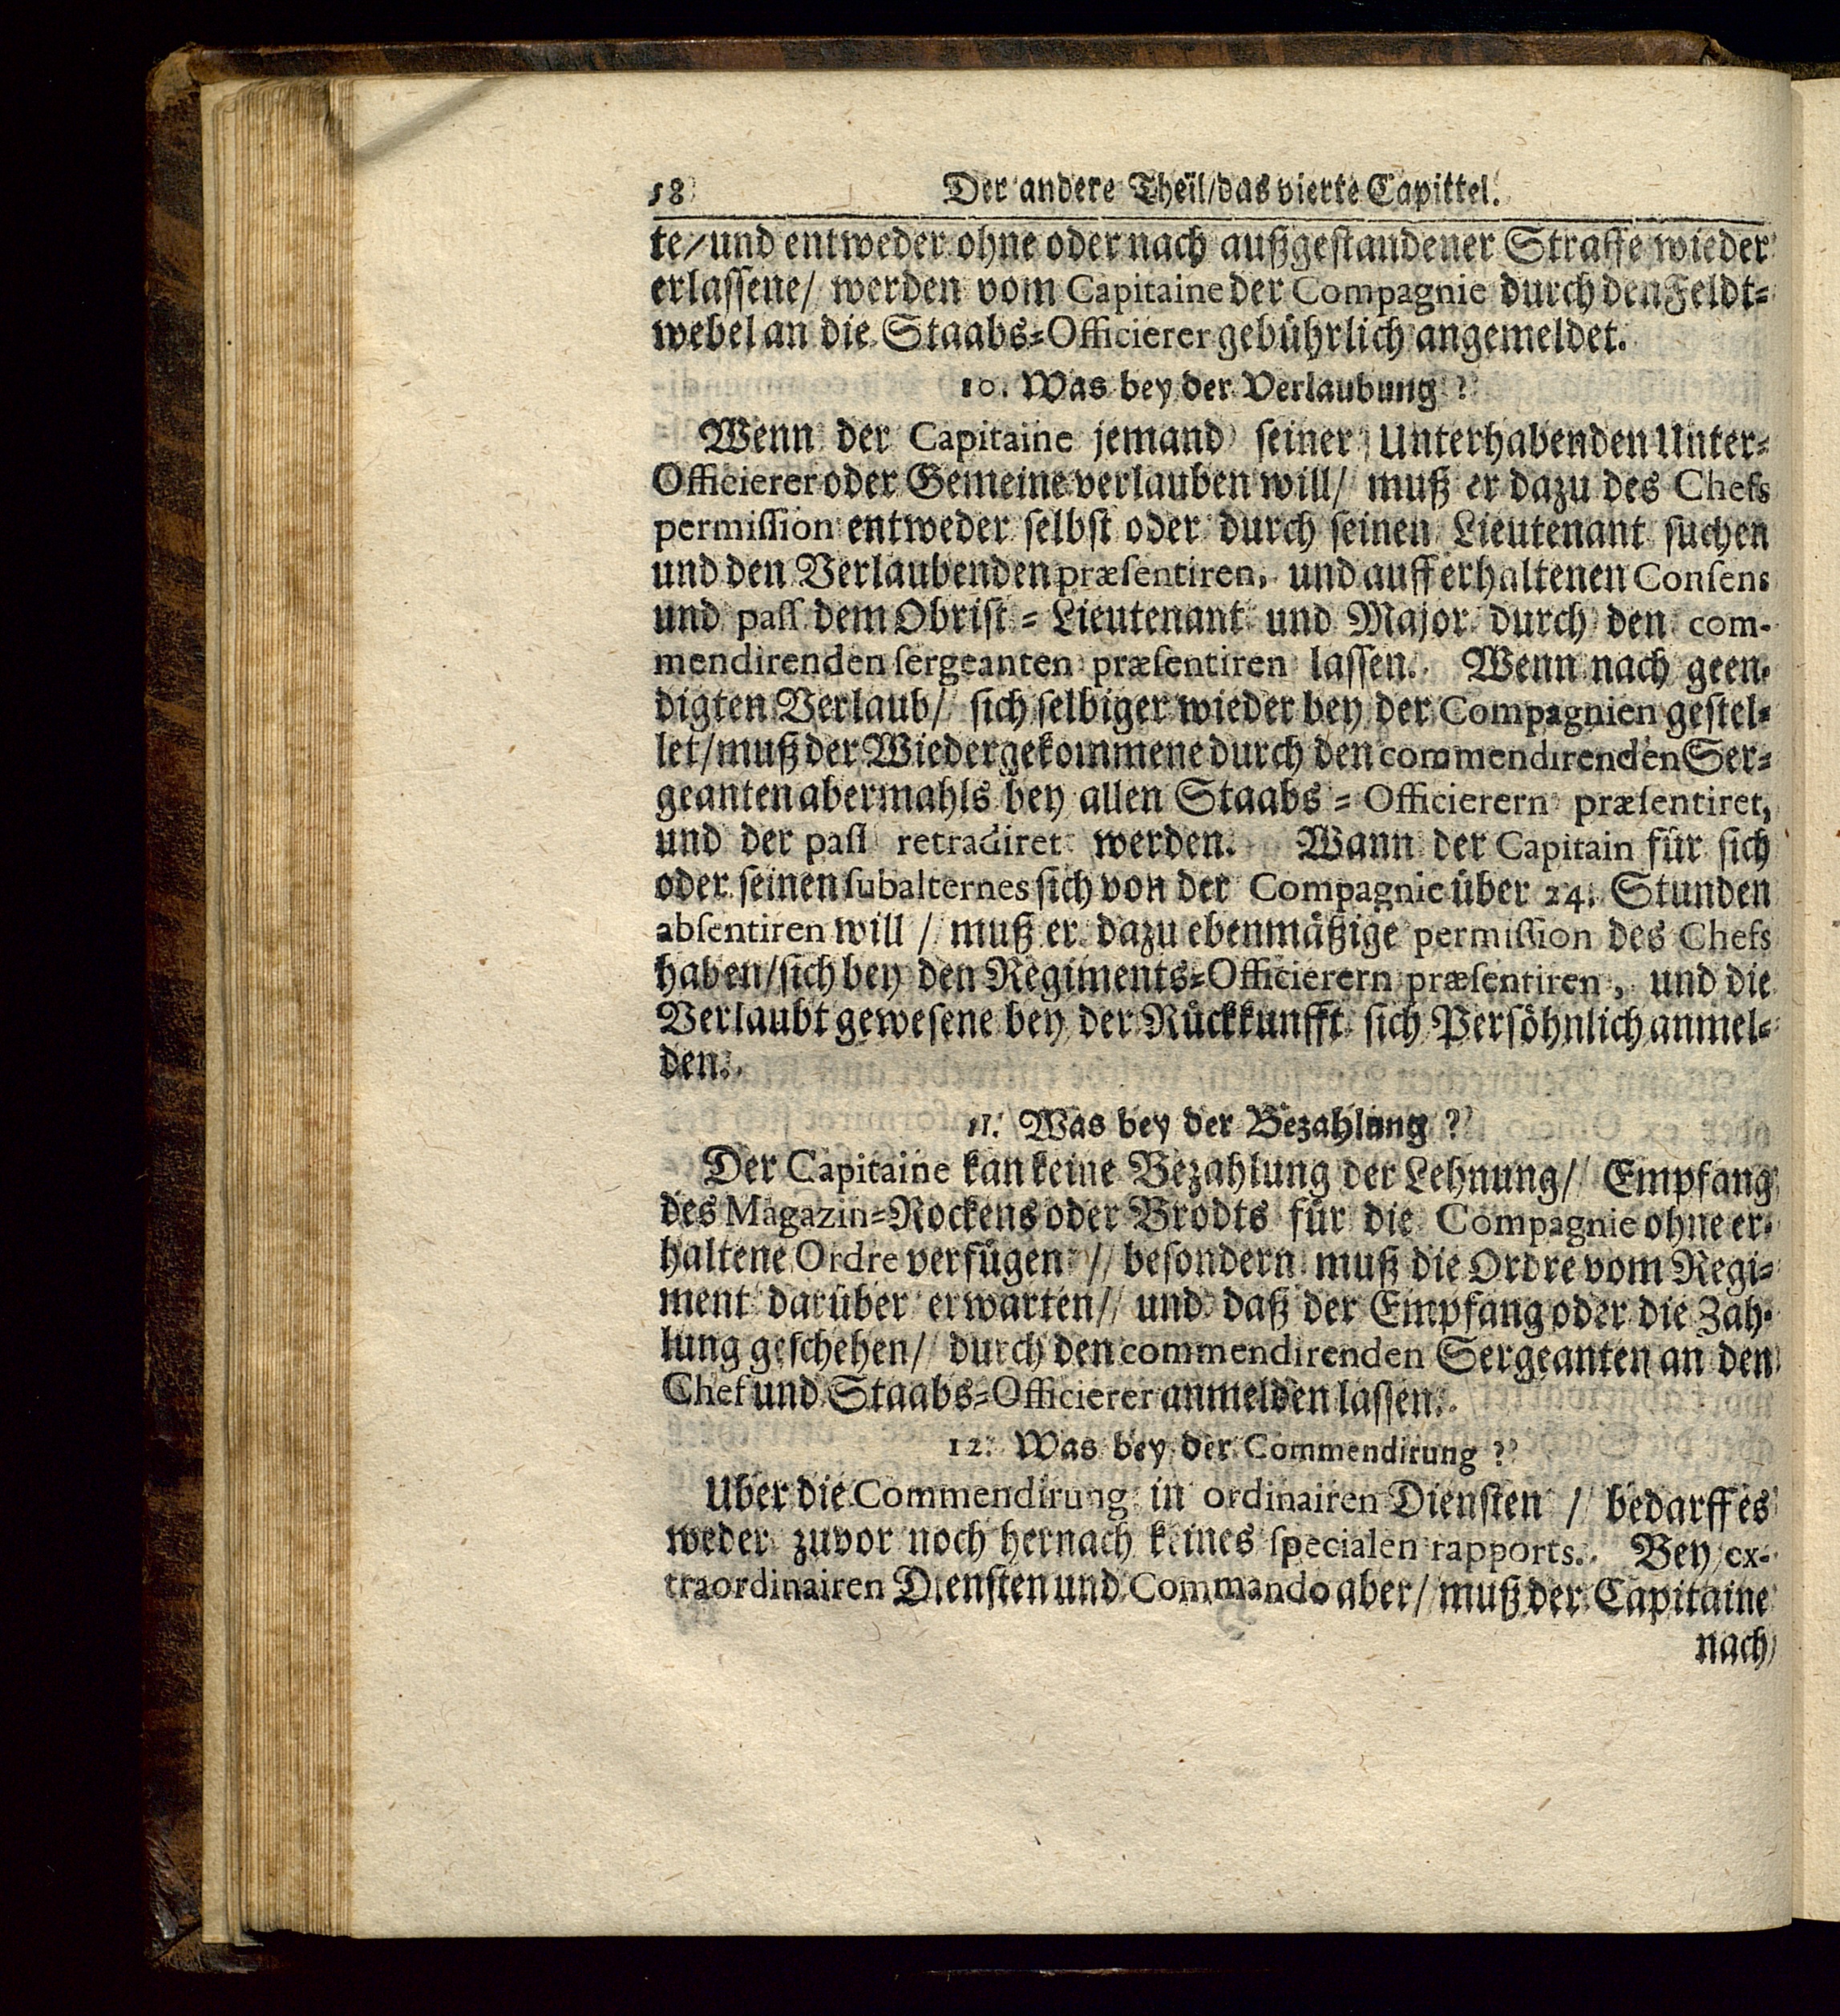 18 Der andere Theil/das vierte Capittel.
te/und entweder ohne oder nach außgestandener Straffe wieder
erlassene/ werden vom Capitaine der Compagnie durch den Feldt-
webel an die Staabs-Officierer gebührlich angemeldet.
10. Was bey der Verlaubung?
Wenn der Capitaine jemand seiner Unterhabenden Unter-
Officierer oder Gemeine verlauben will/ muß er dazu des Chefs
permission entweder selbst oder durch seinen Lieutenant suchen
und den Verlaubenden præsentiren, und auff erhaltenen Consens
und pass dem Obrist-Lieutenant und Major durch den com-
mendirenden sergeanten præsentiren lassen. Wenn nach geen-
digten Verlaub/ sich selbiger wieder bey der Compagnien gestel-
let/muß der Wiedergekommene durch den commendirenden Ser-
geanten abermahls bey allen Staabs-Officierern præsentiret,
und der pass retradiret werden. Wann der Capitain für sich
oder seinen subalternes sich von der Compagnie über 24. Stunden
absentiren will/ muß er dazu ebenmäßige permission des Chefs
haben/sich bey den Regiments-Officierern præsentiren, und die
Verlaubt gewesene bey der Rückkunfft sich Persöhnlich anmel-
den.
11. Was bey der Bezahlung?
Der Capitaine kan keine Bezahlung der Lehnung/ Empfang
des Magazin-Rockens oder Brodts für die Compagnie ohne er-
haltene Ordre verfügen/ besondern muß die Ordre vom Regi-
ment darüber erwarten/ und daß der Empfang oder die Zah-
lung geschehen/ durch den commendirenden Sergeanten an den
Chef und Staabs-Officierer anmelden lassen.
12. Was bey der Commendirung?
Uber die Commendirung in ordinairen Diensten/ bedarff es
weder zuvor noch hernach keines specialen rapports. Bey ex-
traordinairen Diensten und Commando aber/ muß der Capitaine
nach